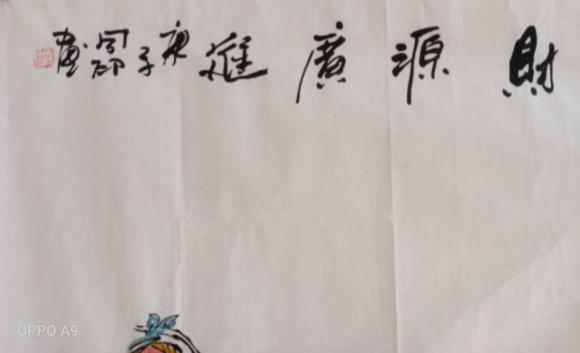 財源廣進 庚子 周 畫
OPPO A9